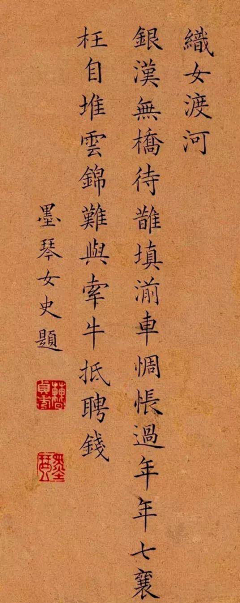 織女渡河
銀漢無橋待䧿填湔車惆悵過年年七襄
枉自堆雲錦難與牽牛抵聘錢
墨琴女史題
墨琴